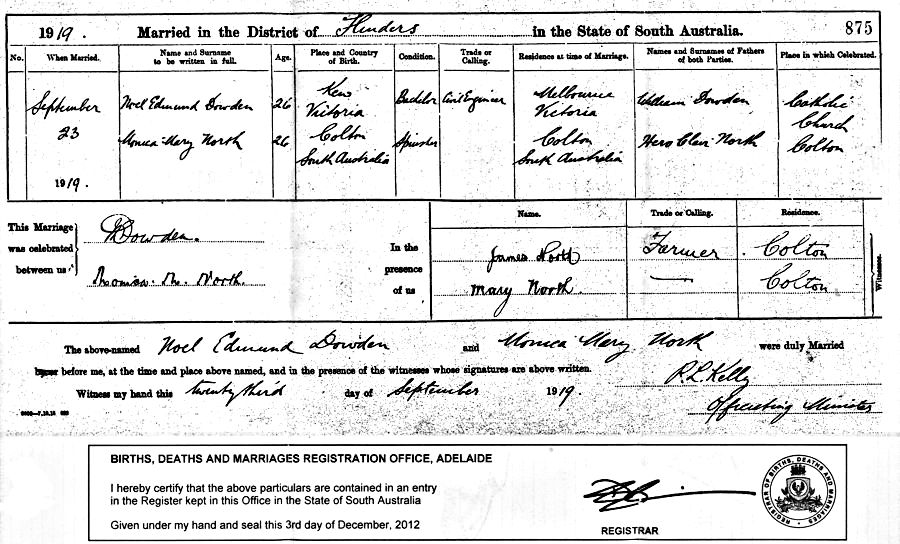 1919. Married in the District of Flinders in the State of South Australia. 875
No. When Married. Name and Surname to be written in full. Age. Place and Country of Birth. Condition. Trade or Calling. Residence at time of Marriage. Names and Surnames of Fathers of both Parties. Place in which Celebrated.
September 23 1919.
Noel Edmund Dowden 26 Kew Victoria Bachelor Civil Engineer Melbourne Victoria William Dowden Catholic Church Colton
Monica Mary North 26 Colton South Australia Spinster Colton South Australia North
This Marriage was celebrated between us
Dowden.
Monica. M. North.
In the presence of us
Name. Trade or Calling. Residence.
James North Farmer Colton
Mary North. — Colton
Witnesses.
The above-named Noel Edmund Dowden and Monica Mary North were duly Married
before me, at the time and place above named, and in the presence of the witnesses whose signatures are above written.
R.L. Kelly
Witness my hand this twenty third day of September 1919.
Officiating Minister
BIRTHS, DEATHS AND MARRIAGES REGISTRATION OFFICE, ADELAIDE
I hereby certify that the above particulars are contained in an entry
in the Register kept in this Office in the State of South Australia
Given under my hand and seal this 3rd day of December, 2012
REGISTRAR
REGISTRAR OF BIRTHS, DEATHS AND MARRIAGES